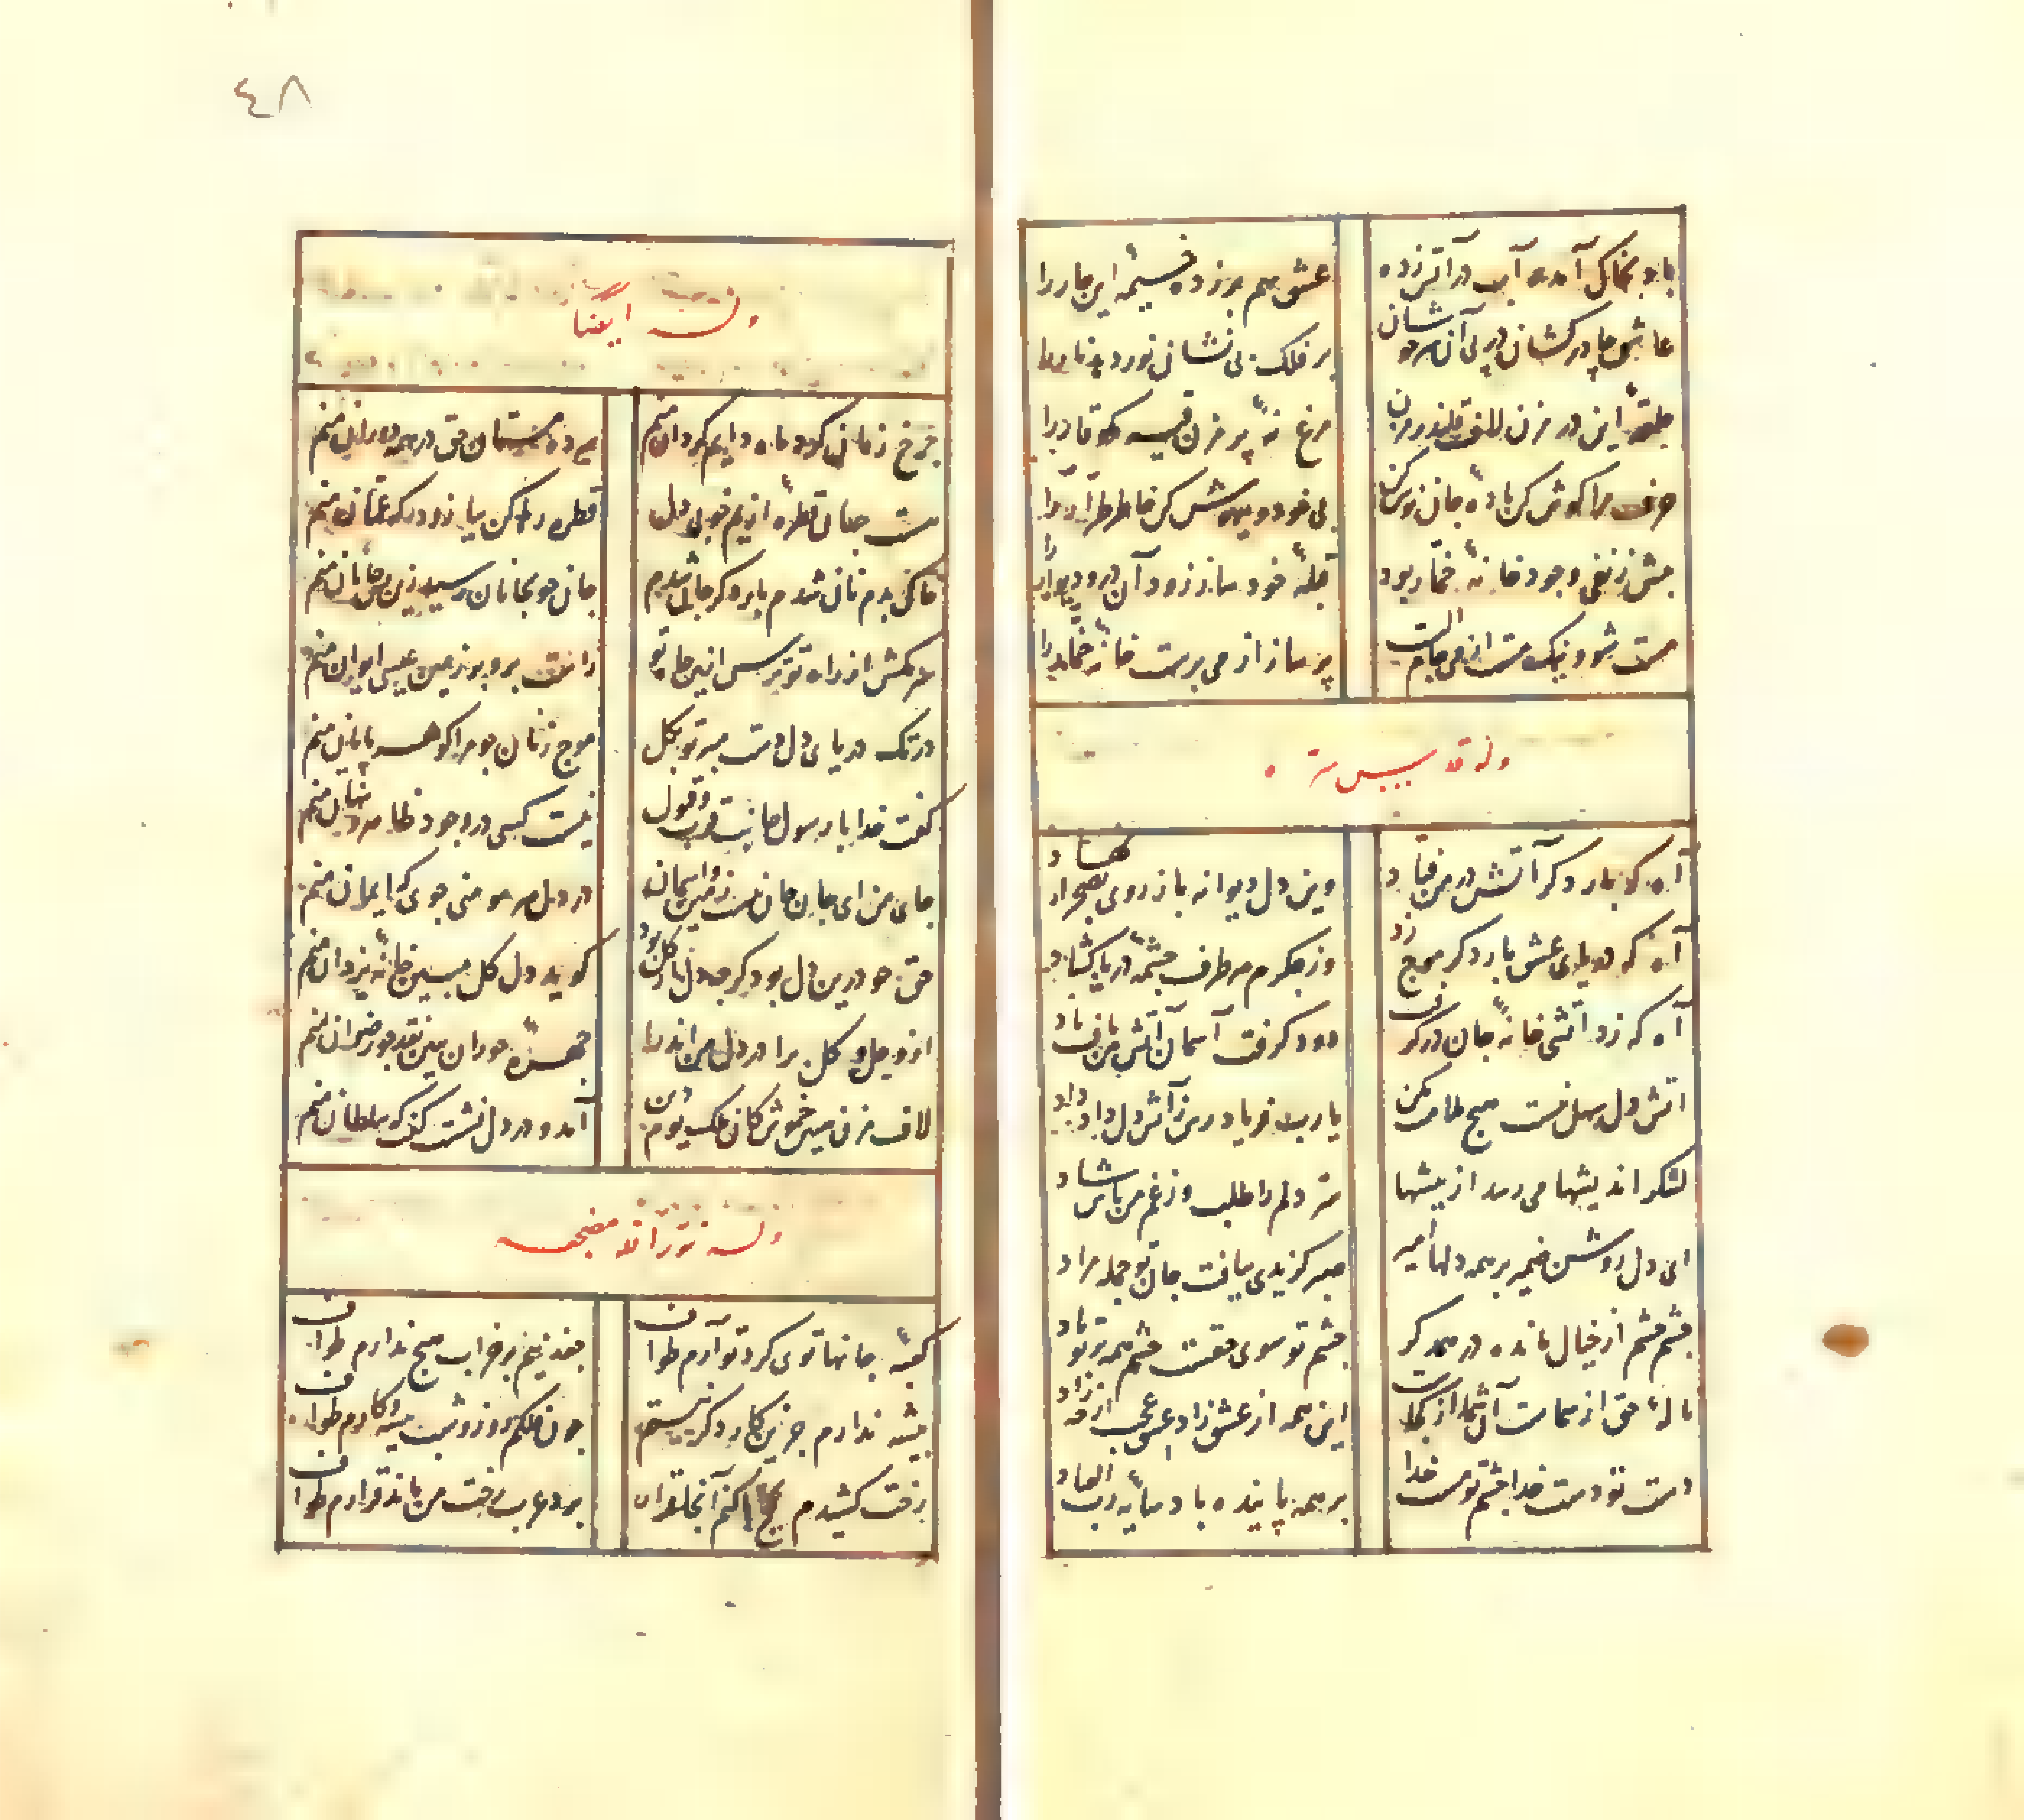 ٤٨
باد بخاک آمده آب در آتش زده
عشق بهم بر زده خیمه این چار را
عاشق چادر کشان در پی آن مه‌وشان
بر فلک بی نشان نور دهد نار را
حلقه این در مزن لاف قلندر مزن
مرغ نه پر مزن
حرف مرا گوش کن باده جان نوش کن
بی خود و بیهوش کن خاطر طرار را
پیش ز نفی وجود خانه خمار بود
قبله خود ساز زود آن در و دیوار را
مست شود نیک مست از می جام الست
پر ساز از می پرست خانه خمار را
وله قدس سره
آه که بار دگر آتش در من فتاد
وین دل دیوانه باز روی بصحرا نهاد
آه که دریای عشق بار دگر موج زد
وز جگرم هر طرف چشمه دریا گشاد
آه که زد آتشی خانه جان در گرفت
دود گرفت آسمان آتش من یافت باد
آتش دل سهل نیست هیچ ملامت مکن
یا رب فریاد رس ز آتش دل داد داد
لشکر اندیشها می رسد از بیشها
سر دلم را طلب وز غم من باش شاد
ای دل روشن ضمیر بر همه دلها امیر
صبر گزیدی بیافت جان تو جمله مراد
چشم همه از خیال مانده در همدگر
چشم تو سوی حقست چشم همه بر تو باد
ناله حق از سماست آن شما از کجاست
این همه از عشق زاد عشق عجب از چه زاد
دست تو دست خدا چشم تو مست خدا
بر همه پاینده باد سایه رب العباد
وله ایضا
چرخ زمان گرد ماه دایم گردان منم
قطره رها کن بیا زود که عمان منم
مست جهان قطره از یم خوبی دل
خاک بدم نان شدم بار دگر جان شدم
جان چو بجانان رسید زین پس جانان منم
سر مکش از راه تو ترس ازین چاه تو
در تک دریای دل دست مبر تو بگل
موج زنان جو مرا گوهر پایان منم
گفت خدا با رسول
نیست کسی در وجود ظاهر و پنهان منم
جای من ای جان جان نیست زمین و آسمان
در دل هر مومنی جوی که ایمان منم
حق چو درین دل بود گرچه دل از گل بود
گوید دل گل مبین خانه یزدان منم
از دو جهان کل برا در دل من اندرا
چهره حوران ببین نقد چو رضوان منم
لاف مزن میر خوش کان ملک یوم دین
آمد و در دل نشست گفت که سلطان منم
وله نور الله مضجعه
کعبه جانها توی گرد تو آرم طواف
جغد نیم بر خراب هیچ ندارم طواف
پیشه ندارم جزین کار دگر نیستم
چون فلکم روز و شب پیشه و کارم طواف
رخت کشیدم بحج تا کنم آنجا قرار
برد عرب رخت من ماند قرارم طواف